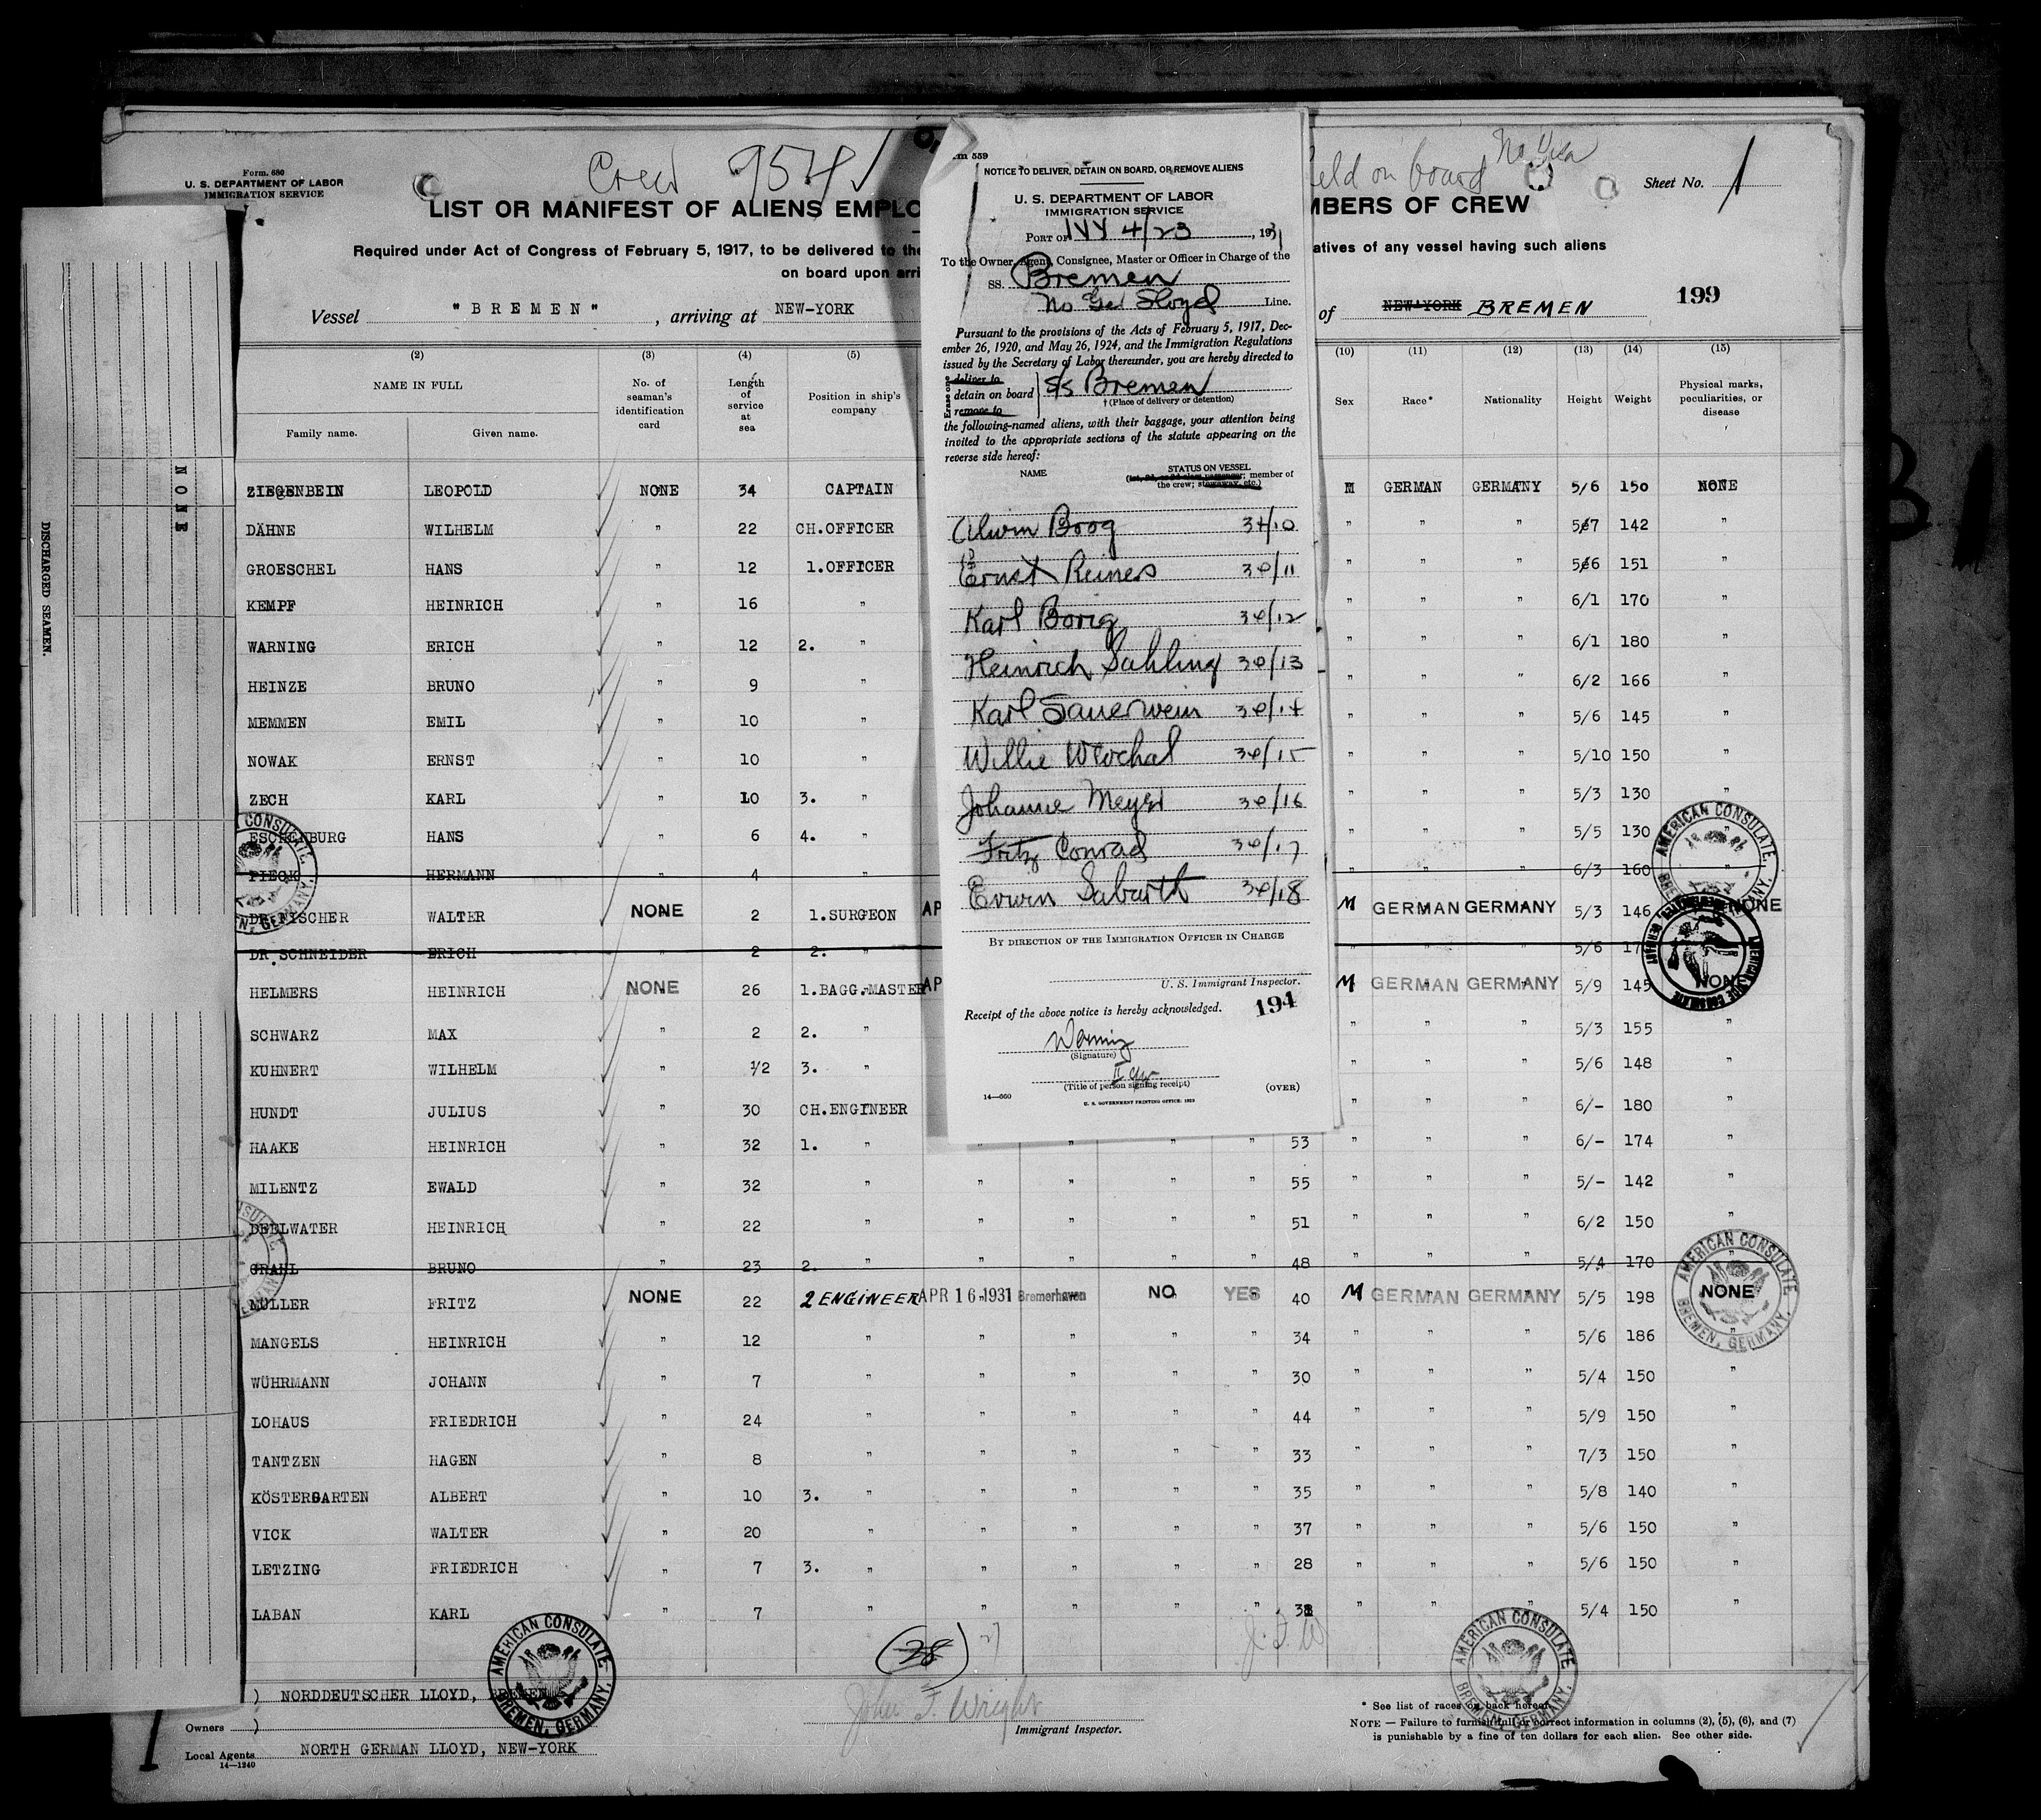 Form. 680
U. S. DEPARTMENT OF LABOR
IMMIGRATION SERVICE
Crew 954
held on board No Visa
Sheet No. 1
LIST OR MANIFEST OF ALIENS EMPLO
MBERS OF CREW
Required under Act of Congress of February 5, 1917, to be delivered to the
atives of any vessel having such aliens
on board upon arri
199
Vessel "BREMEN", arriving at NEW-YORK
of NEW-YORK BREMEN
(2) (3) (4) (5) (10) (11) (12) (13) (14) (15)
NAME IN FULL
Family name. Given name.
No. of seaman's identification card
Length of service at sea
Position in ship's company
Sex Race* Nationality Height Weight
Physical marks, peculiarities, or disease
ZIEGENBEIN LEOPOLD NONE 34 CAPTAIN M GERMAN GERMANY 5/6 150 NONE
DÄHNE WILHELM " 22 CH.OFFICER " " " 5/7 142 "
GROESCHEL HANS " 12 1.OFFICER " " " 5/6 151 "
KEMPF HEINRICH " 16 " " " " 6/1 170 "
WARNING ERICH " 12 2. " " " " 6/1 180 "
HEINZE BRUNO " 9 " " " " 6/2 166 "
MEMMEN EMIL " 10 " " " " 5/6 145 "
NOWAK ERNST " 10 " " " " 5/10 150 "
ZECH KARL " 10 3. " " " " 5/3 130 "
ESCHENBURG HANS " 6 4. " " " " 5/5 130 "
PIECK HERMANN " 4 " " " " 6/3 160 "
DR.FISCHER WALTER NONE 2 1.SURGEON AP M GERMAN GERMANY 5/3 146 NONE
DR.SCHNEIDER ERICH 2 2. " " " " 5/6
HELMERS HEINRICH NONE 26 1.BAGG.-MASTER AP M GERMAN GERMANY 5/9 145 NONE
SCHWARZ MAX " 2 2. " " " " 5/3 155 "
KUHNERT WILHELM " 1/2 3. " " " " 5/6 148 "
HUNDT JULIUS " 30 CH.ENGINEER " " " 6/- 180 "
HAAKE HEINRICH " 32 1. " " " " " 53 " " " 6/- 174 "
MILENTZ EWALD " 32 " " " " " 55 " " " 5/- 142 "
DEELWATER HEINRICH " 22 " " " " " 51 " " " 6/2 150 "
GRAHL BRUNO " 23 2. " " " " " 48 " " " 5/4 170 "
MÜLLER FRITZ NONE 22 2 ENGINEER APR 16 1931 Bremerhaven NO YES 40 M GERMAN GERMANY 5/5 198 NONE
MANGELS HEINRICH " 12 " " " " " 34 " " " 5/6 186 "
WÜHRMANN JOHANN " 7 " " " " " 30 " " " 5/4 150 "
LOHAUS FRIEDRICH " 24 " " " " " 44 " " " 5/9 150 "
TANTZEN HAGEN " 8 " " " " " 33 " " " 7/3 150 "
KÖSTERGARTEN ALBERT " 10 3. " " " " " 35 " " " 5/8 140 "
VICK WALTER " 20 " " " " " 37 " " " 5/6 150 "
LETZING FRIEDRICH " 7 3. " " " " " 28 " " " 5/6 150 "
LABAN KARL " 7 " " " " " " " " 5/4 150 "
(28) 27
J. F. W
NORDDEUTSCHER LLOYD, BREMEN
Owners
Local Agents NORTH GERMAN LLOYD, NEW-YORK
14—1240
John F. Wright
Immigrant Inspector.
* See list of races on back hereof.
NOTE — Failure to furnish full or correct information in columns (2), (5), (6), and (7)
is punishable by a fine of ten dollars for each alien. See other side.
AMERICAN CONSULATE, BREMEN, GERMANY.
AMERICAN CONSULATE, BREMEN, GERMANY.
AMERICAN CONSULATE, BREMEN, GERMANY.
AMERICAN CONSULATE, BREMEN, GERMANY.
NONE
DISCHARGED SEAMEN.
rm 559
NOTICE TO DELIVER, DETAIN ON BOARD, OR REMOVE ALIENS
U. S. DEPARTMENT OF LABOR
IMMIGRATION SERVICE
PORT OF NY 4/23, 1931
To the Owner, Agent, Consignee, Master or Officer in Charge of the
SS. Bremen
No Ger Lloyd Line.
Pursuant to the provisions of the Acts of February 5, 1917, Dec-
ember 26, 1920, and May 26, 1924, and the Immigration Regulations
issued by the Secretary of Labor thereunder, you are hereby directed to
Erase one
deliver to
detain on board
remove to
S/s Bremen
† (Place of delivery or detention)
the following-named aliens, with their baggage, your attention being
invited to the appropriate sections of the statute appearing on the
reverse side hereof:
NAME STATUS ON VESSEL
(1st, 2d, or 3d class passenger; member of
the crew; stowaway, etc.)
Alwin Boog 34/10
Ernst Reiners 34/11
Karl Borig 34/12
Heinrich Sahling 34/13
Karl Sauerwein 34/14
Willie Wrochal 34/15
Johanne Meyer 34/16
Fritz Conrad 34/17
Erwin Sabarth 34/18
BY DIRECTION OF THE IMMIGRATION OFFICER IN CHARGE
U. S. Immigrant Inspector.
Receipt of the above notice is hereby acknowledged. 194
Warning
(Signature)
II Offr.
(Title of person signing receipt)
(OVER)
14—660
U. S. GOVERNMENT PRINTING OFFICE: 1928